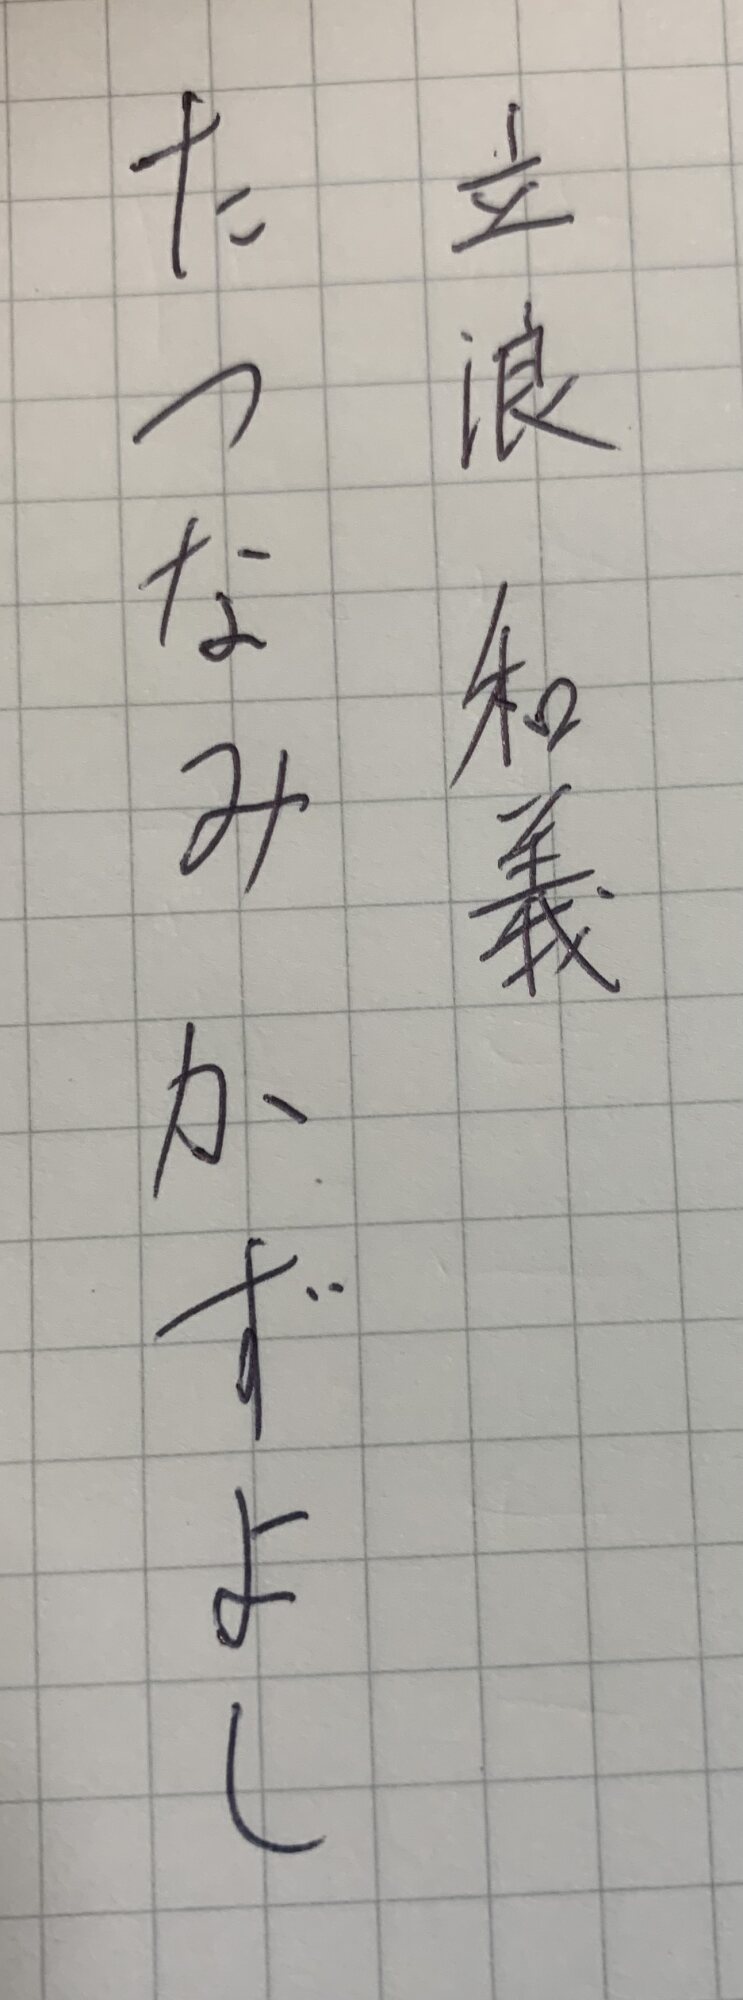 立浪 和義
たつなみ かずよし